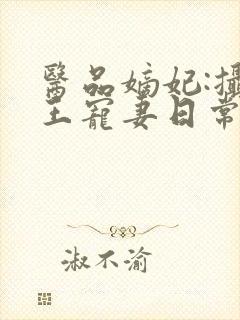 醫品嫡妃:攝
王寵妻日常
淑不渝